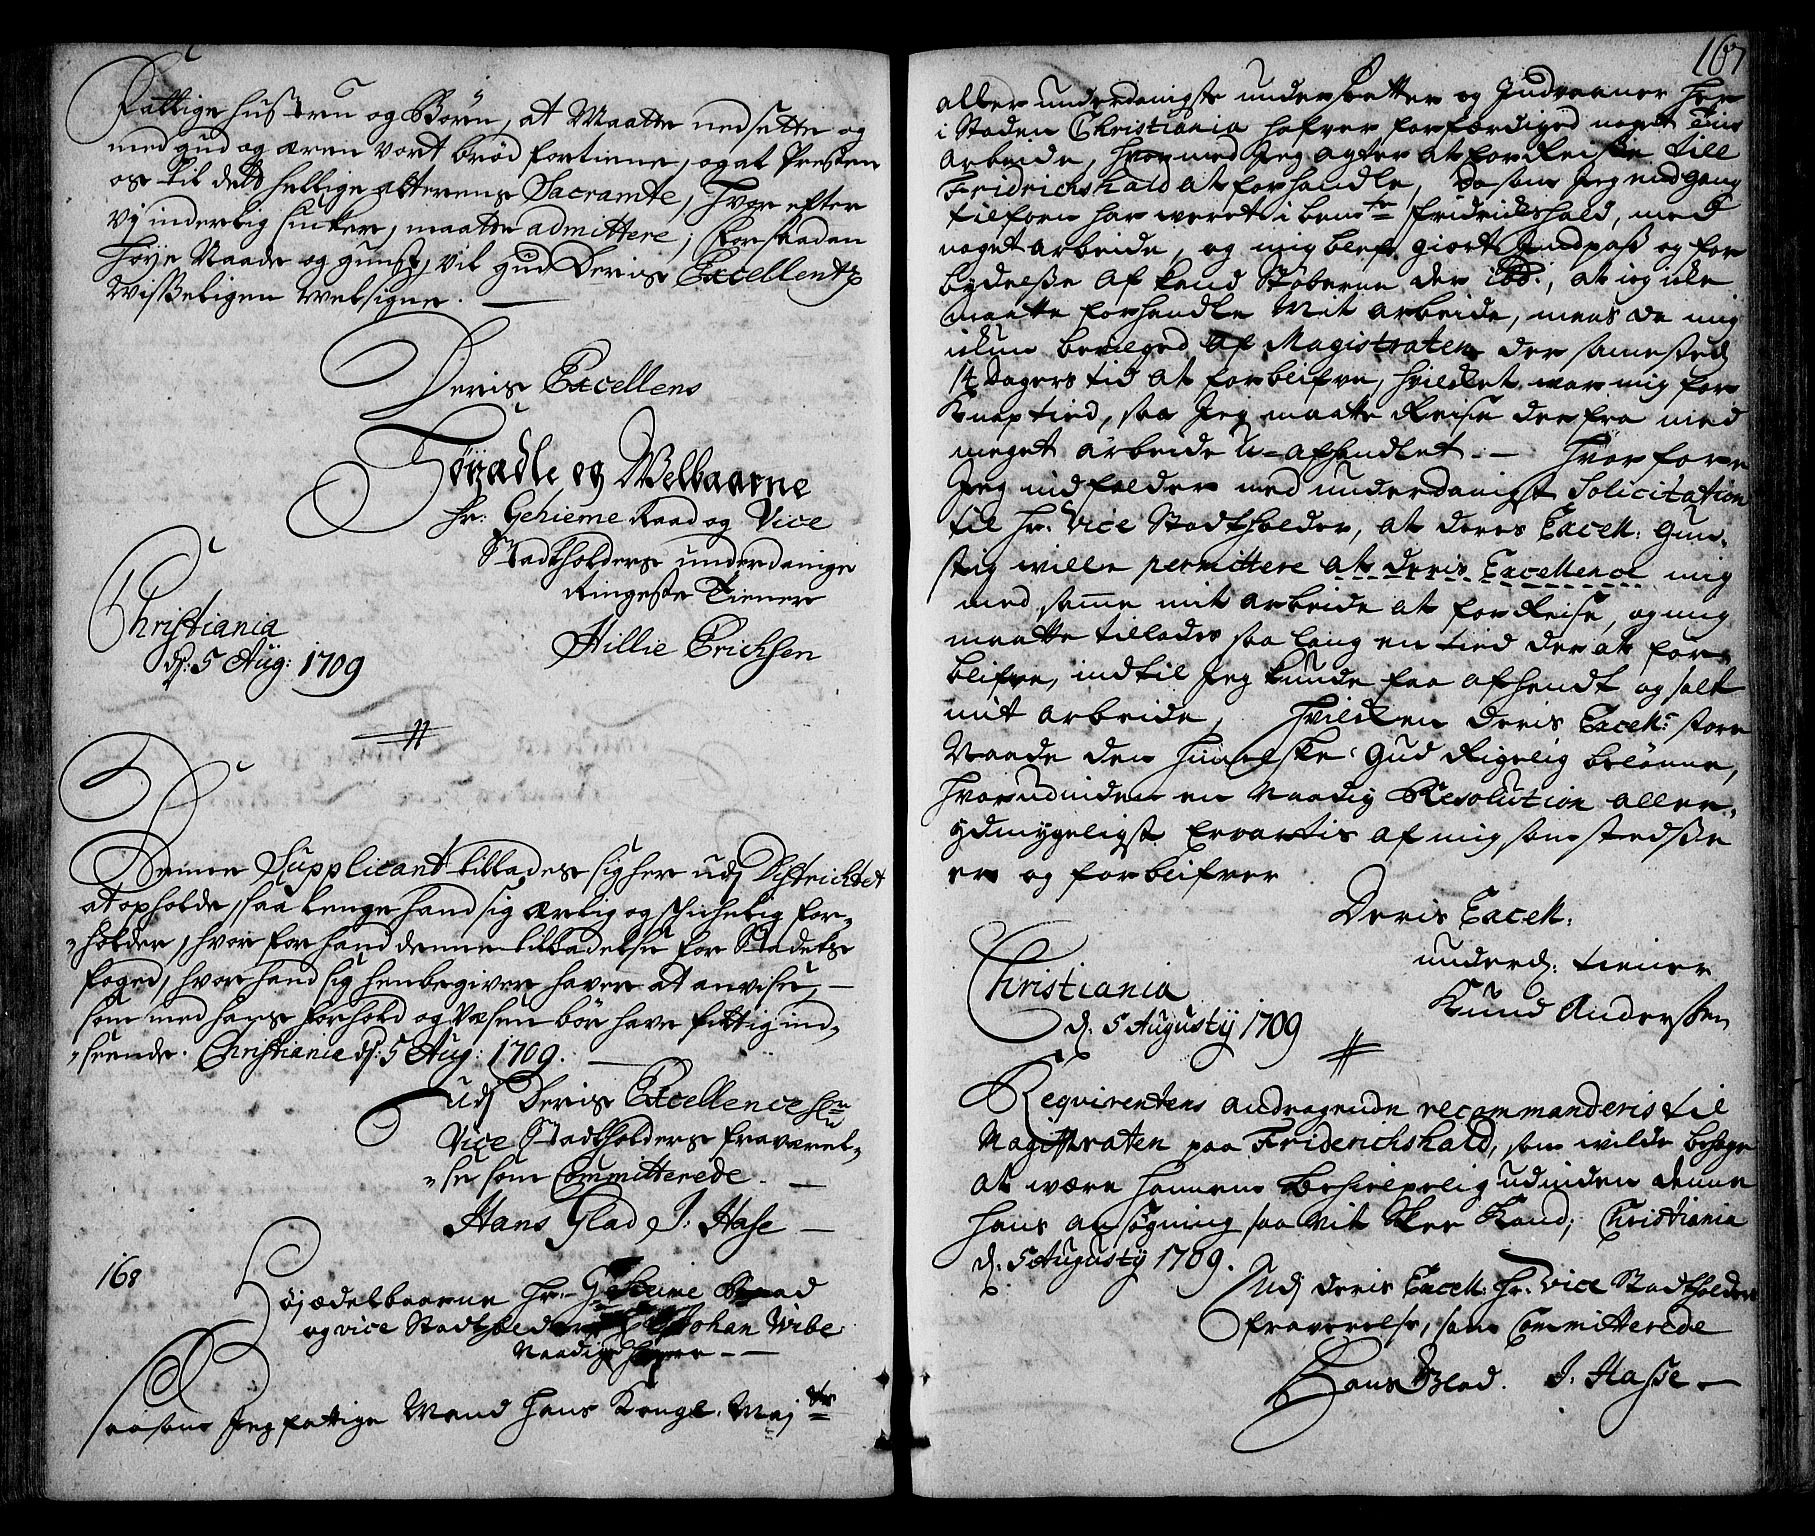 Fattige hustru og Børn, at Maatte nedsette og
med gud og æren vort brød fortiene, og at Presten
os til dett hellige alterens Sacramte, hvor efter
vj inderlig sucker, maatte admittere, for saadan
høye Naade og gunst, vil gud Deris Excellentz
Visseligen Velsigne.
Deris Excellens
Høyædle og Welbaarne
Hr: Gehieme Raad og Vice
Stadtholders underdanige
Ringeste Tiener
Hillie Erichsen
Christiania
d: 5 Aug: 1709
Denne Supplicant tillades sig her udj Districhtet
at opholde, saa lenge hand sig ærlig og schichelig for-
"holder, hvor for hand denne tilladelse for Stædets
foged, hvor hand sig henbegiver haver at anvise,
som med hans forhold og Væsen bør have flittig ind-
"seende. Christiania d: 5 Aug: 1709.
Udj Deris Excellence Hr
Vice Stadtholders fraværel-
"se som Committerede.
Hans Glad J: Hase
168
Høyædelbaarne Hr. Geheime Raad
og vice Stadtholder Johan Vibe
Naadige herre
Saasom Jeg fattige Mand Hans Kongl. Maj ts
167
aller underdanigste undersaatter og Indvaaner her
i Staden Christiania hafver forferdiged noget Tin
arbeide, hvormed Jeg agter at forReise till
Fridrichshald at forhandle, Da som Jeg end gang
tilforn har weret i bemte Fridrickshald, med
noget arbeide, og mig blef giort Indpass og for
bydelsse af kand Støberne der ibd:, at ieg icke
maatte forhandle Mit arbeide, mens da mig
ickun bevilged af Magistraten der samested
14 Dagers tid at forblifve, hvilcket war mig for
Knap tied, saa Jeg maatte Reise der fra med
meget arbeide U-afhandlet. — Hvor fore
Jeg indfalder med underdanigst Solicitation
til Hr: Vice Stadtholder, at deres Excell: Gun-
stig wille permittere at deris Excellence mig
med samme mit arbeide at forReise, og mig
maatte tillades saa lang en tied der at for-
blifve, indtil Jeg kunde faa afhendt og solt
mit arbeide, Hvilcken Deris Excell: store
Naade den himelske Gud Rigelig belønne,
hvorudinden en Naadig Resolution aller-
ydmygeligst Ervartis af mig som stedsse
er og forblifver
Deris Excell:
underd: tiener
Knud Anderssen
Christiania
d. 5 Augusty 1709
Reqvirentens andragende recommanderis til
Magistraten paa Friderichshald, som wilde behage
at være hannem behielpelig udinden denne
hans ansøgning saa vit skee Kand; Christiania
d: 5 Augusty 1709.
Udj Deris Excell: Hr: Vice Stadtholders
fraverelse, som Committerede
Hans Glad. J. Hasse